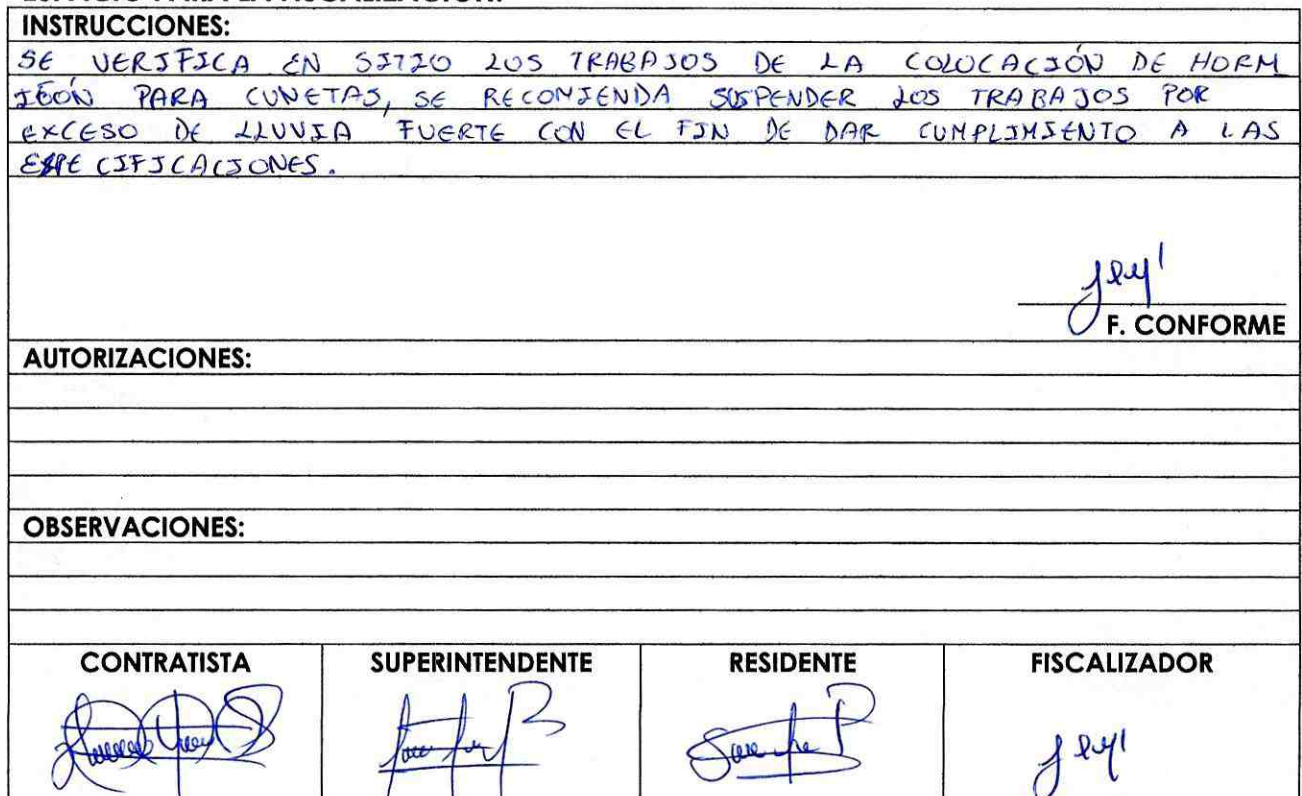 INSTRUCCIONES:
SE VERIFICA EN SITIO LOS TRABAJOS DE LA COLOCACIÓN DE HORM
IGÓN PARA CUNETAS, SE RECOMIENDA SUSPENDER LOS TRABAJOS POR
EXCESO DE LLUVIA FUERTE CON EL FIN DE DAR CUMPLIMIENTO A LAS
ESPECIFICACIONES.
F. CONFORME
AUTORIZACIONES:
OBSERVACIONES:
CONTRATISTA SUPERINTENDENTE RESIDENTE FISCALIZADOR